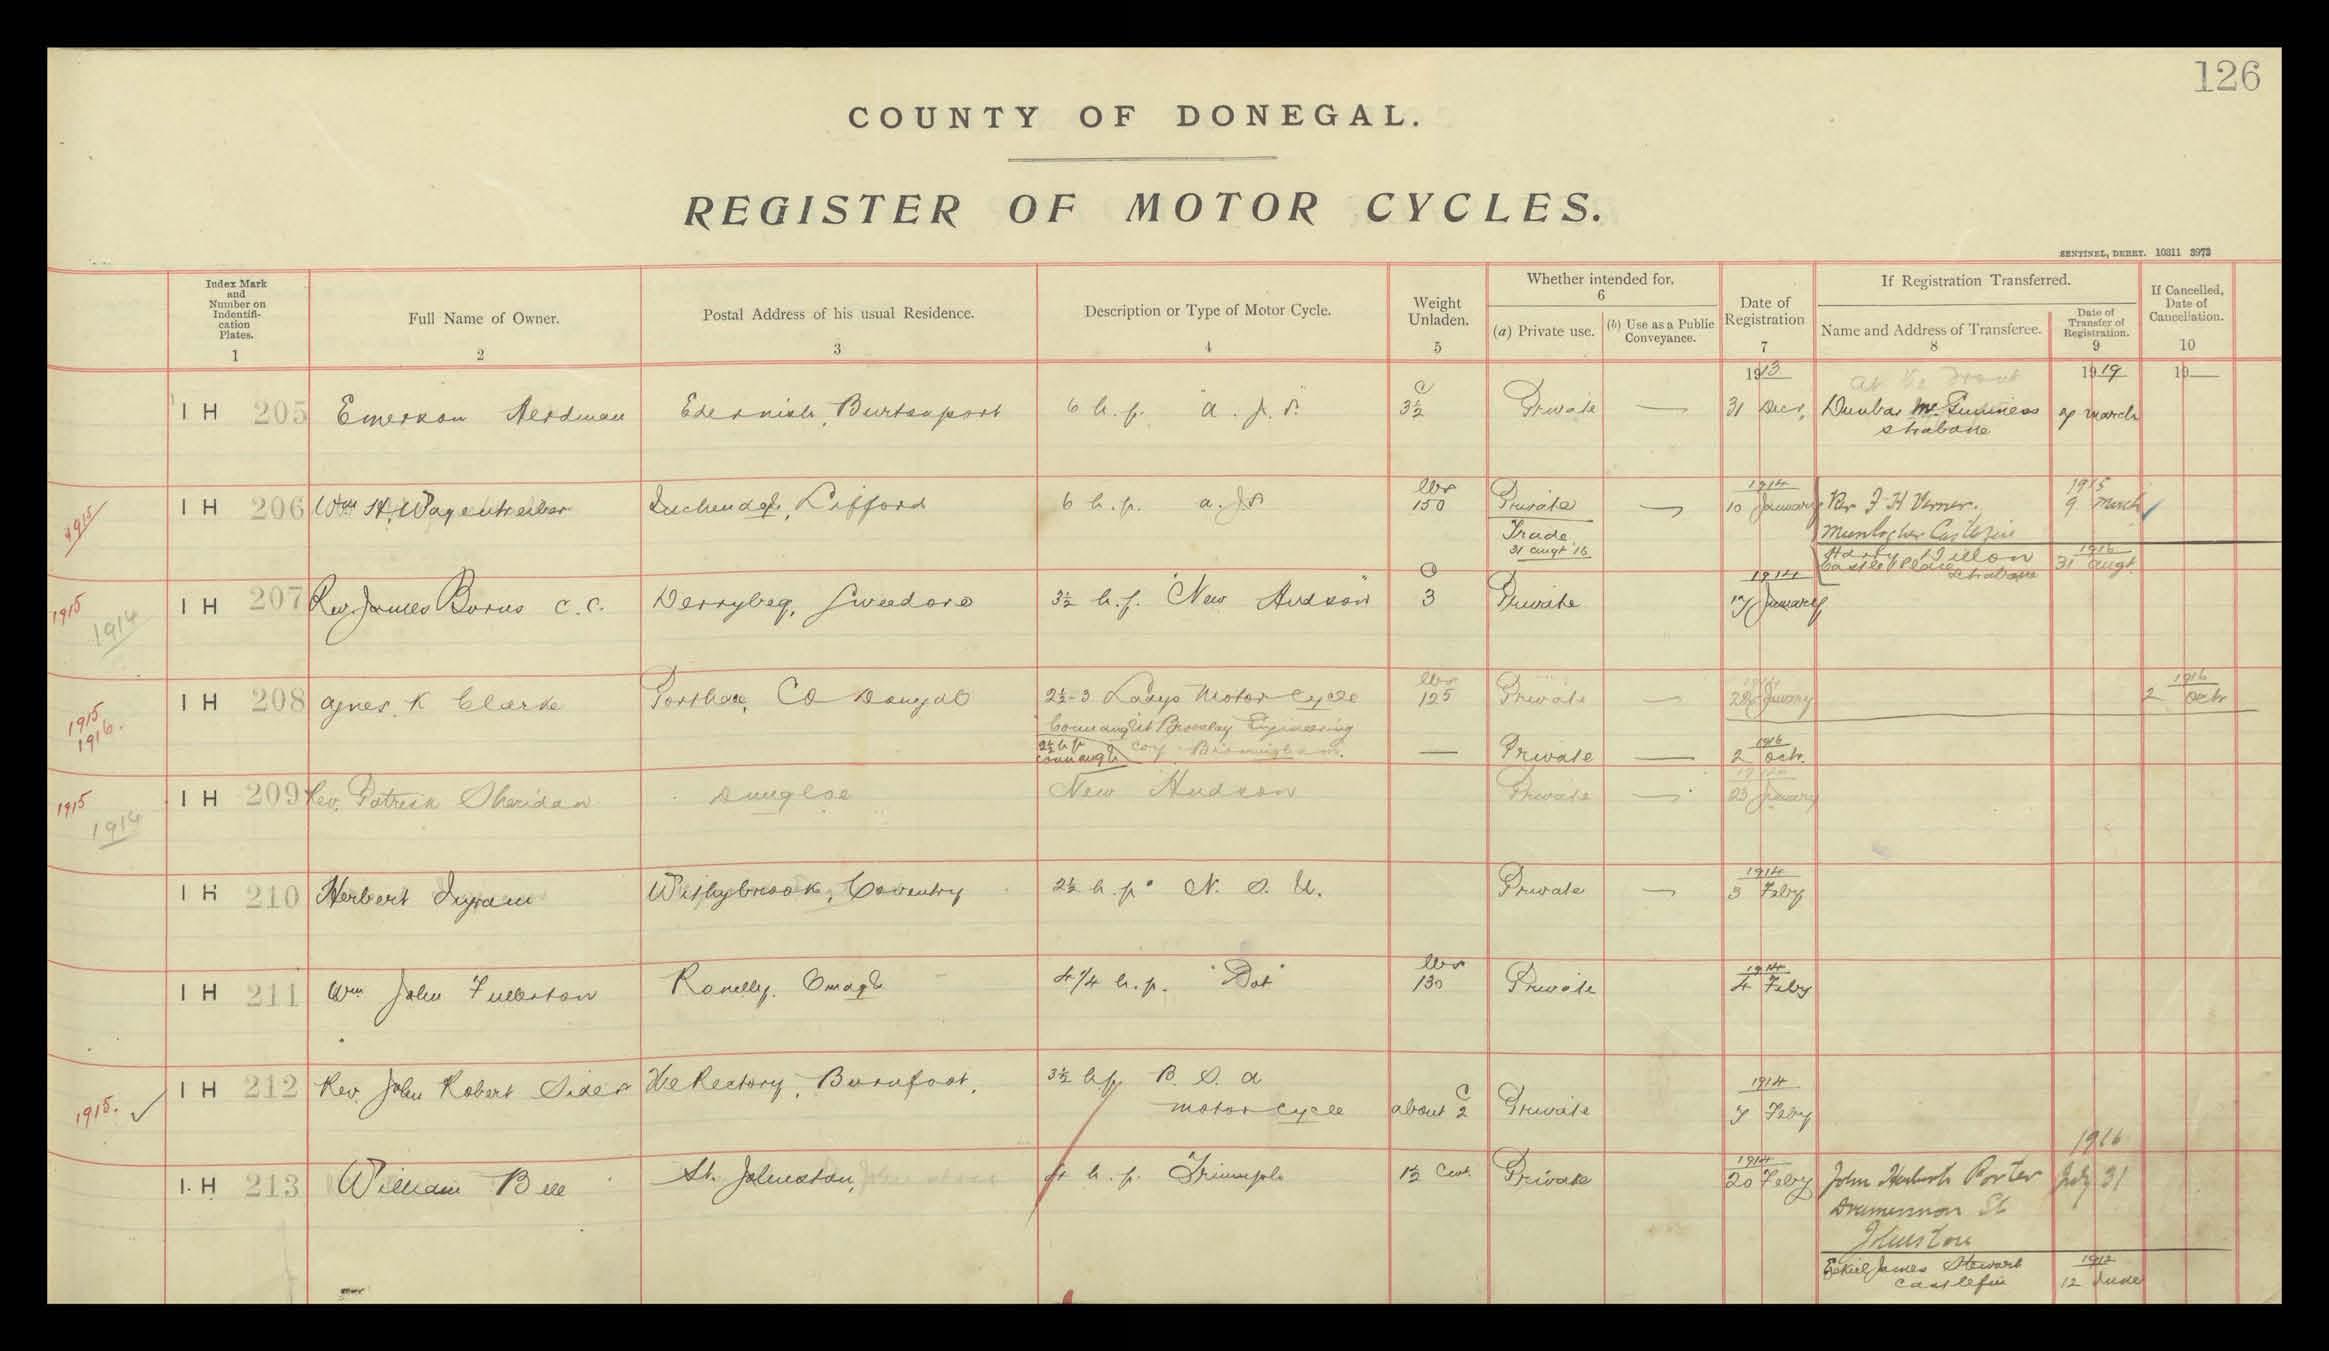 126
COUNTY OF DONEGAL.
REGISTER OF MOTOR CYCLES.
SENTINEL, DERRY. 10311 3973
Index Mark and Number on Indentifi-cation Plates. 1
Full Name of Owner. 2
Postal Address of his usual Residence. 3
Description or Type of Motor Cycle. 4
Weight Unladen. 5
Whether intended for. 6
(a) Private use.
(b) Use as a Public Conveyance.
Date of Registration 7
If Registration Transferred.
Name and Address of Transferee. 8
Date of Transfer of Registration. 9
If Cancelled, Date of Cancellation. 10
1913 At the Front 1919 19
I H 205 Emerson Herdman Edernish, Burtonport 6 h.p. "A. J. S." C 3½ Private — 31 Decr. Dunbar McGuinness 7 March
Strabane
1915 I H 206 Wm H. Wagentreiber Lifford 6 h.p. A. J. S. lbs 150 Private — 1914 10 January Rev F H Verner. 1915 9 March
Trade Castlefin
31 Augt '16 Harry Dillon 1916
Castle Place Strabane 31 Augt.
1915 1914 I H 207 Rev James Borus C. C. Derrybeg, Gweedore 3½ h.p. "New Hudson" C 3 Private 1914 17 January
1915 1916. I H 208 Agnes. K Clarke Porthall, Co Donegal 2½-3 Ladys Motor Cycle lbs 125 Private — 1914 January 1916 2 Octr
Connaught Bromley Engineering
2½ h.p. Connaught Coy Birmingham. — Private — 1916 2 Octr.
1915 1914 I H 209 Rev. Patrick Sheridan Dungloe New Hudson Private — 1914 23 January
I H 210 Herbert Ingram Withybrook, Coventry 2½ h.p. N. S. U. Private — 1914 3 Feby
I H 211 Wm John Fullerton Omagh 4¼ h.p. "Dot" lbs 130 Private 1914 4 Feby
1915. I H 212 Rev. John Robert Sides The Rectory, Burnfoot. 3½ h.p. B. S. A
motor cycle about C 2 Private 1914 7 Feby
I. H 213 William Bell St. Johnston, 4 h.p. Triumph 1½ Cwt. Private 1914 20 Feby John Herbert Porter 1916 July 31
St
Johnston
James Stewart
Castlefin 12 June